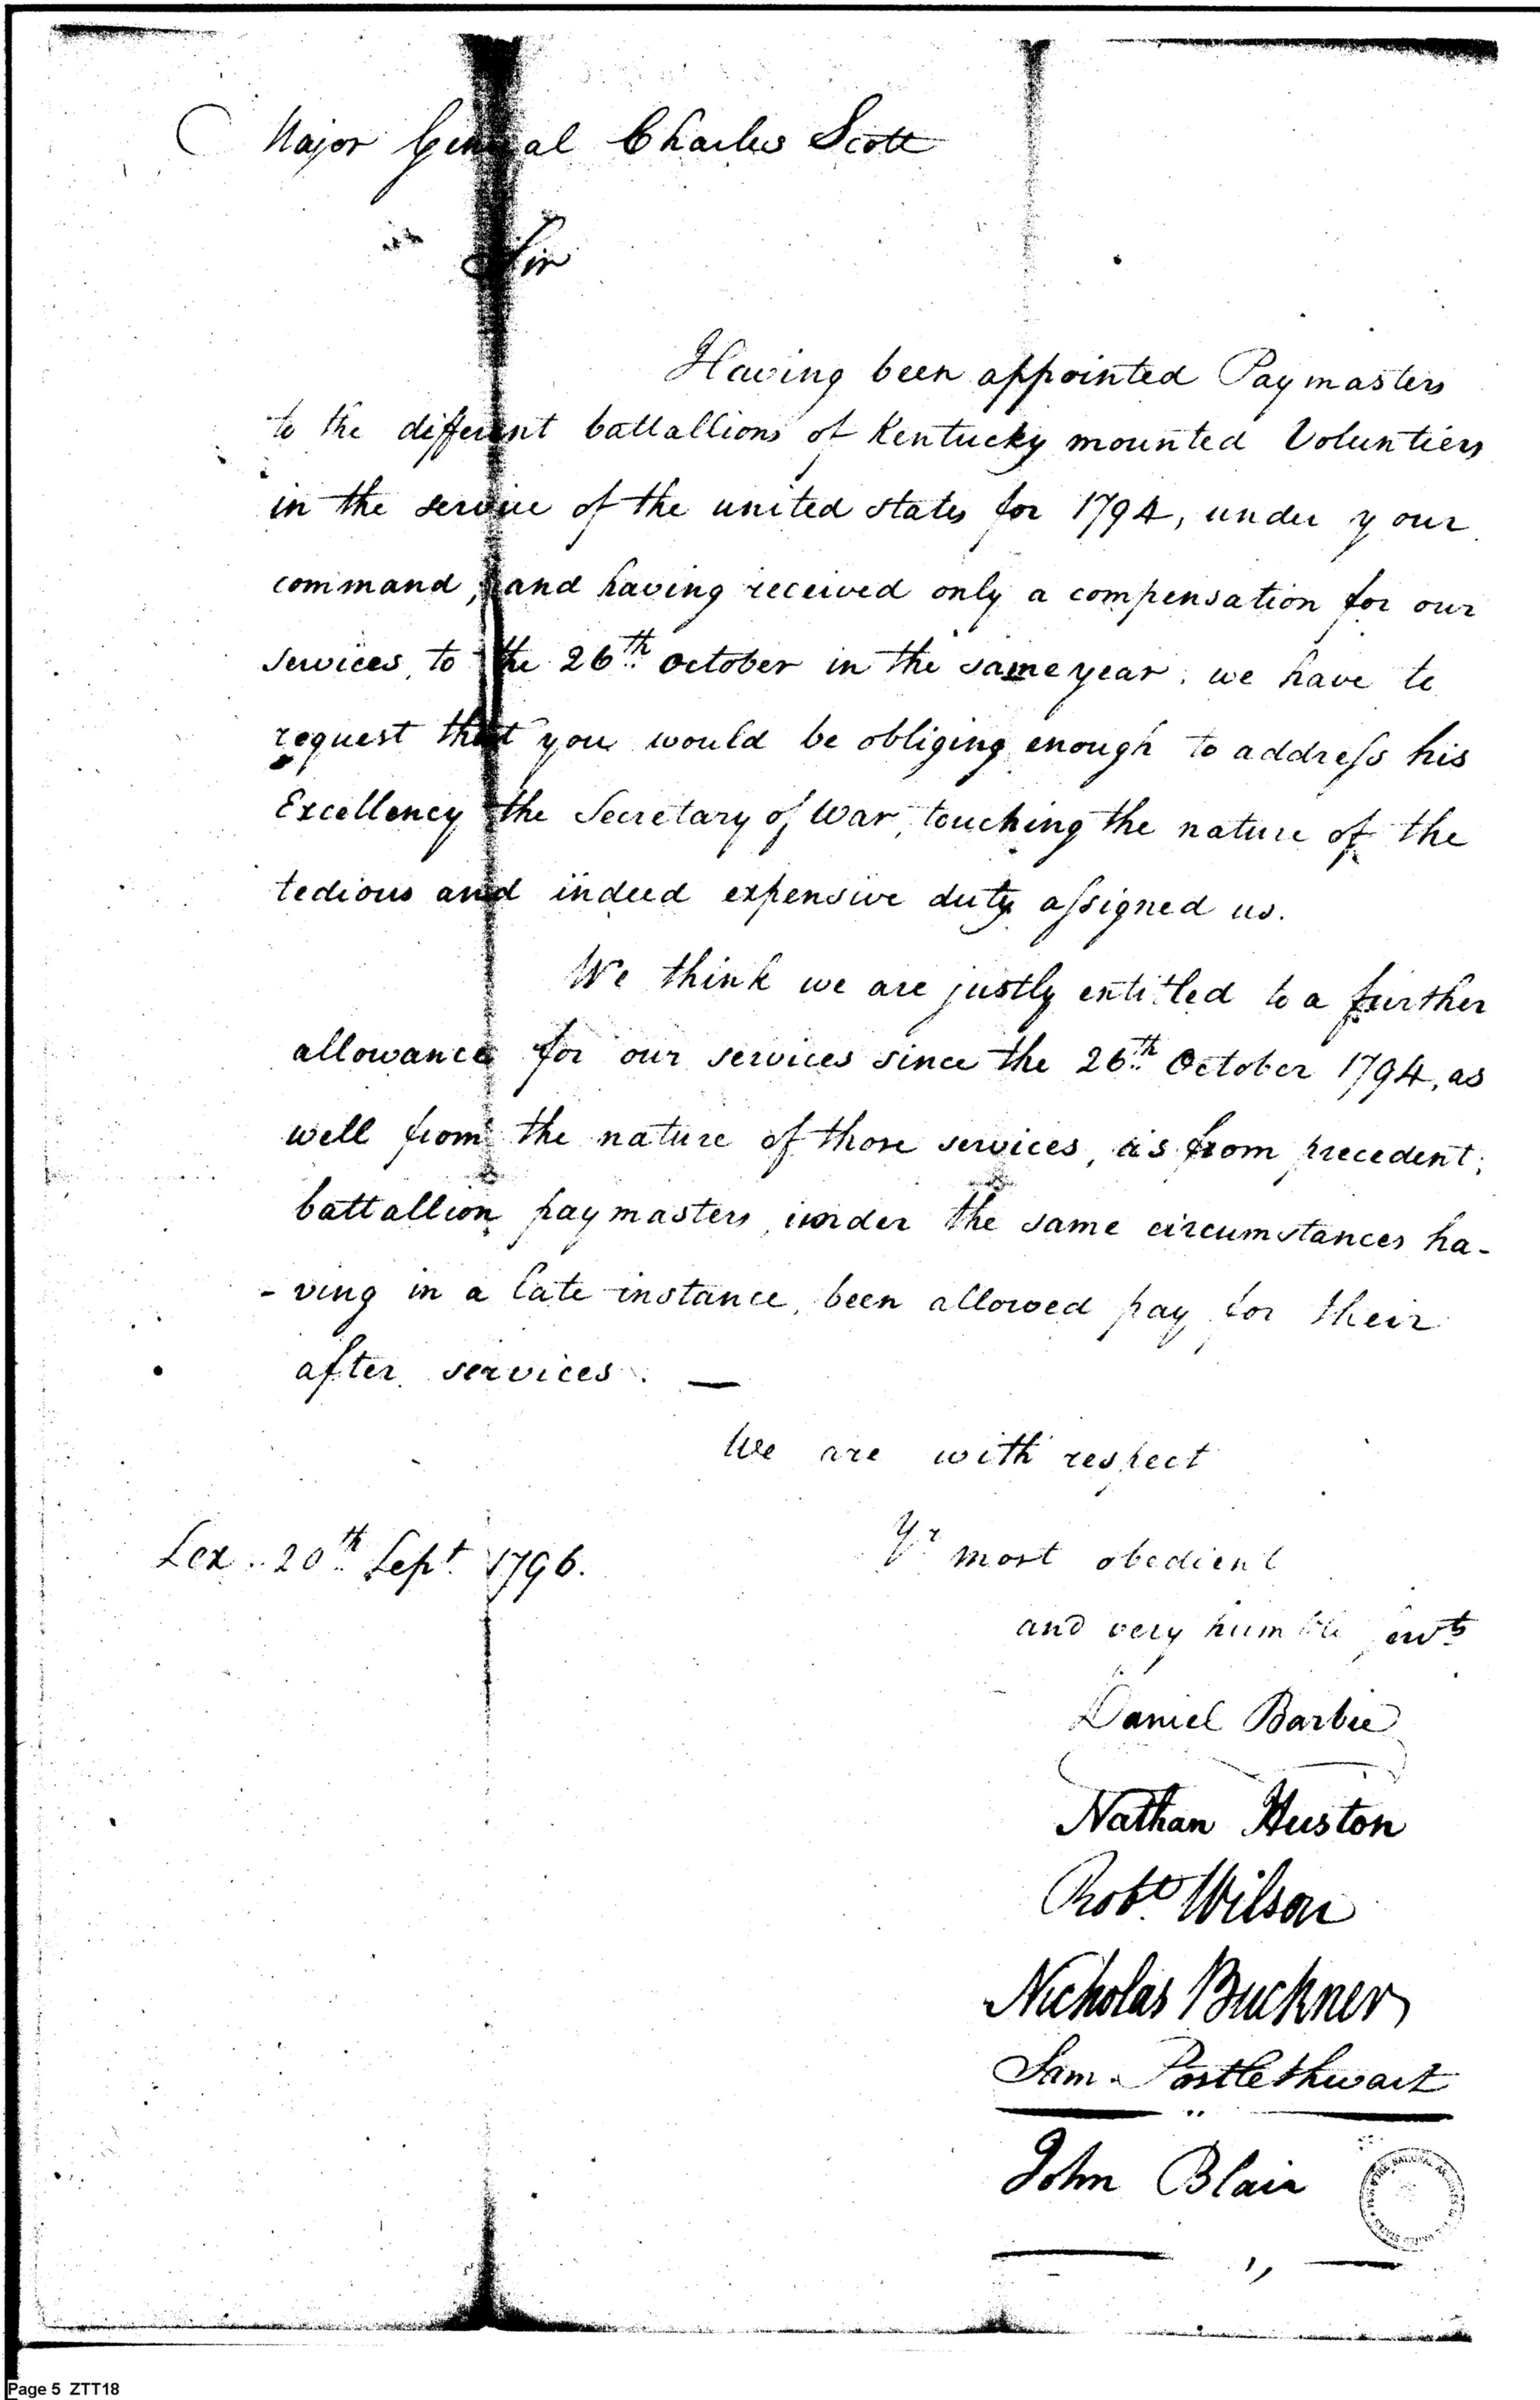 Major General Charles Scott
Sir
Having been appointed Paymasters
to the different battallions of Kentucky mounted Voluntiers
in the service of the united states for 1794, under your
command, and having received only a compensation for our
services, to the 26th October in the same year, we have to
request that you would be obliging enough to addreſs his
Excellency the Secretary of War, touching the nature of the
tedious and indeed expensive duty aſsigned us.
We think we are justly entitled to a further
allowance for our services since the 26th October 1794, as
well from the nature of those services, as from precedent;
battallion paymasters, under the same circumstances ha-
-ving in a late instance, been allowed pay for their
after services. —
We are with respect
Lex. 20th Sept 1796.
Yr most obedient
and very humble servts
Daniel Barbee
Nathan Huston
Robt Wilson
Nicholas Buckner
Sam. Postlethwait
John Blair
Page 5 ZTT18